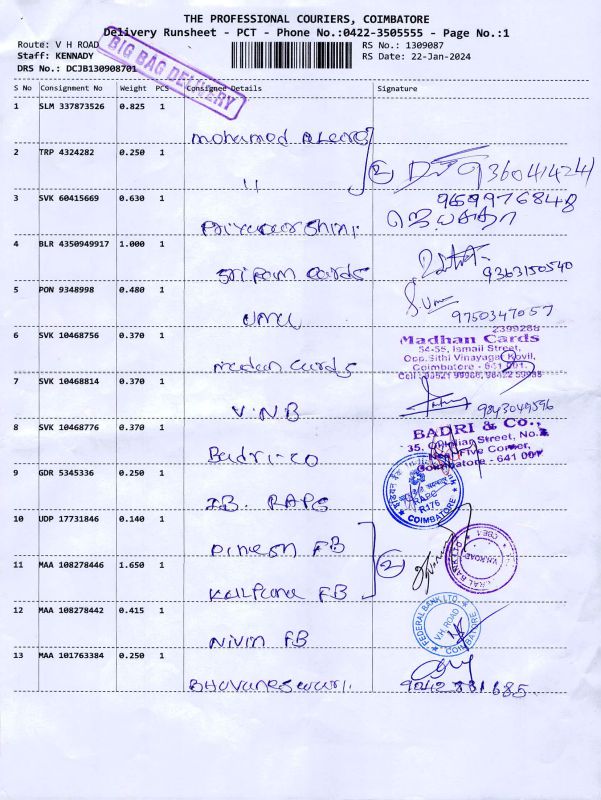 THE PROFESSIONAL COURIERS, COIMBATORE
Delivery Runsheet - PCT - Phone No.:0422-3505555 - Page No.:1
Route: V H ROAD
RS No.: 1309087
Staff: KENNADY
RS Date: 22-Jan-2024
DRS No.: DCJB130908701
BIG BAG DELIVERY
S No Consignment No Weight PCS Consignee Details Signature
1 SLM 337873526 0.825 1
mohamed
2 TRP 4324282 0.250 1
11
2 9360414241
3 SVK 60415669 0.630 1
9659976848
Priyadarshini
ஜெயசுதா
4 BLR 4350949917 1.000 1
Sri Ram cards
9363150540
5 PON 9348998 0.480 1
uma
Uma
9750347057
6 SVK 10468756 0.370 1
2399288
Madhan Cards
54-55, Ismail Street,
Opp.Sithi Vinayagar Kovil,
Coimbatore - 641 001.
madan cards
7 SVK 10468814 0.370 1
V.N.B
9843049596
8 SVK 10468776 0.370 1
BADRI & Co.,
Badri-co
Five Corner,
Coimbatore - 641 001
9 GDR 5345336 0.250 1
IB. RAPG
RAPC
R176
COIMBATORE
10 UDP 17731846 0.140 1
Dinesh FB
11 MAA 108278446 1.650 1
Kalpana FB
2
V.H.ROAD
12 MAA 108278442 0.415 1
Nivin FB
FEDERAL BANK LTD.
V.H. ROAD
COIMBATORE
13 MAA 101763384 0.250 1
Bhuvaneswari.
9042881685